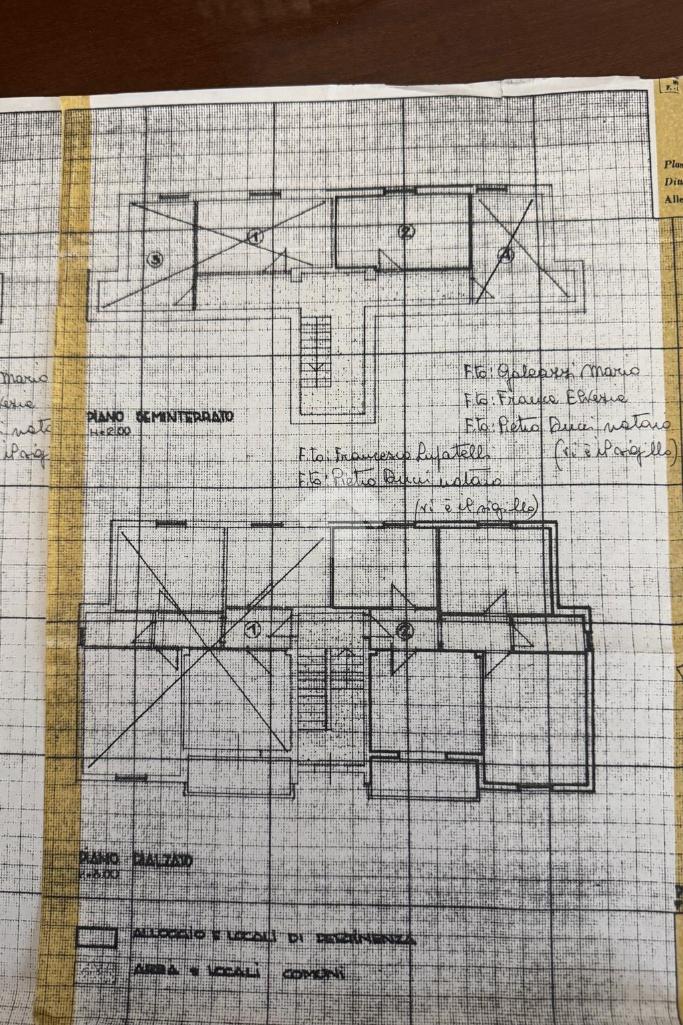 Plan
Din
Alle
3
1
2
4
Mario
F.to: Galeazzi Mario
F.to: Franca Elvezia
F.to: Pietro Ducci notaro
(vi è il sigillo)
PIANO SEMINTERRATO
H=2.00
F.to: Francesco Lupatelli
F.to: Pietro Ducci notaro
(vi è il sigillo)
1
2
PIANO RIALZATO
H=3.00
ALLOGGIO E LOCALI DI PERTINENZA
AREA E LOCALI COMUNI